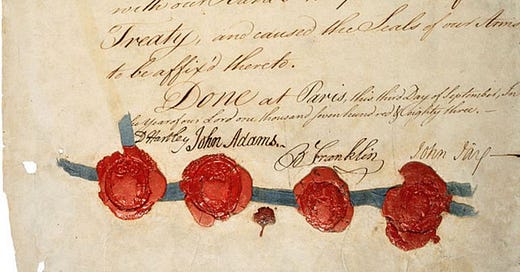 with our
Treaty, and caused the Seals of our Arms
to be affix'd thereto.
Done at Paris, this third Day of September, In
Year of our Lord one thousand seven hundred & eighty three.—
D Hartley John Adams. B Franklin John Jay—